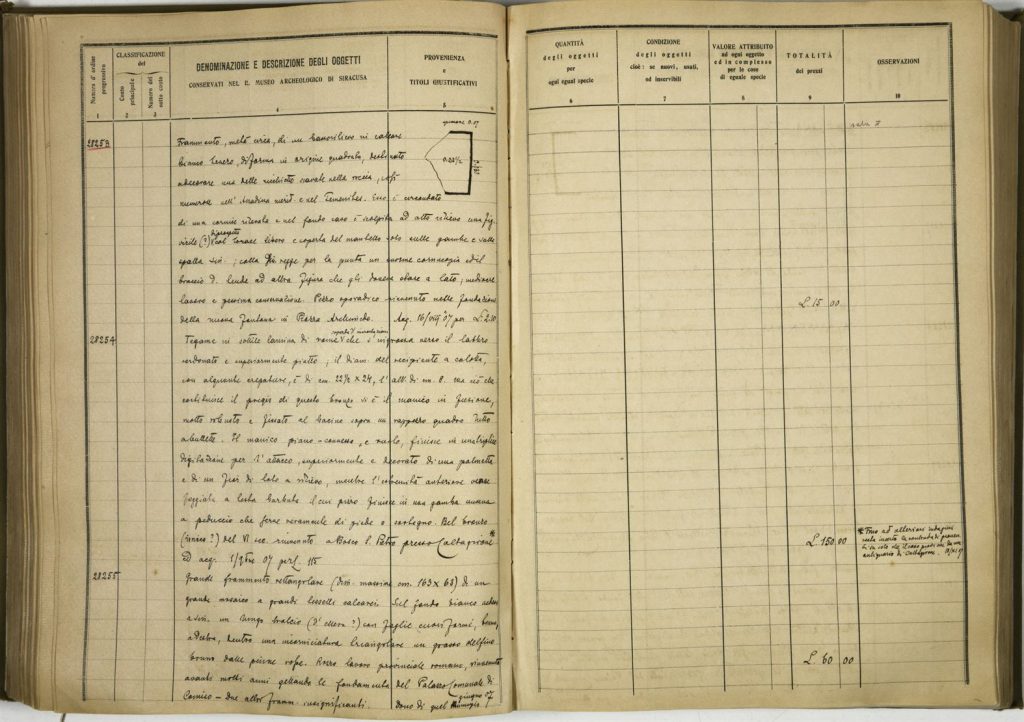 Numero d'ordine progressivo
CLASSIFICAZIONE
del
Conto principale
Numero del sotto conto
DENOMINAZIONE E DESCRIZIONE DEGLI OGGETTI
CONSERVATI NEL R. MUSEO ARCHEOLOGICO DI SIRACUSA
PROVENIENZA
e
TITOLI GIUSTIFICATIVI
1 2 3 4 5
28253
Frammento, metà circa, di un in calcare
bianco tenero, di forma in origine quadrata, destinato
a decorare una delle nicchiette cavate nella roccia, così
numerose nell' merid. e nel Temenites. Esso è circondato
di una cornice rilevata e nel fondo cavo è scolpita ad alto rilievo una fig.
virile (?) di prospetto col torace libero e coperta del mantello solo sulle gambe e sulla
spalla sin.; colla regge per la punta un enorme cornucopia ed il
braccio d. tende ad altra figura che gli doveva stare a lato; mediocre
lavoro e pessima conservazione. Pezzo sporadico rinvenuto nelle fondazioni
della nuova fontana in Piazza Archimede. Acq. 16/VIII 07 per L. 2.50
spessore 0.07
0.22½
28254
Tegame in sottile lamina di rame che s'ingrossa verso il labbro
cordonato e superiormente piatto; il diam. del recipiente a calotta,
con alquante crepature, è di cm. 22½ x 24, l'alt. di cm. 8. ma ciò che
costituisce il pregio di questo bronzo si è il manico in fusione,
molto robusto e fissato al bacino sopra un rapporto quadro tutto
a bullette. Il manico piano-convesso, e vuoto, finisce in una triplice
digitazione per l'attacco, superiormente è decorato di una palmetta
e di un fior di loto a rilievo, mentre l'estremità anteriore viene
foggiata a testa barbata il cui pizzo finisce in una gamba umana
a peduccio che serve veramente di piede o sostegno. Bel bronzo
(ionico?) del VI sec. rinvenuto a Bosco S. Pietro presso Caltagirone
ed acq. 07 per L. 115
28255
Grande frammento rettangolare (dim. massime cm. 163 x 68) di un
grande mosaico a grandi tasselli calcarei. Sul fondo bianco
a sin. un lungo tralcio (d'edera?) con foglie cuoriformi, brune,
a destra, dentro una incorniciatura triangolare un grosso delfino
bruno dalle pinne rosse. Rozzo lavoro provinciale romano, rinvenuto
avanti molti anni gettando le fondamenta del Palazzo Comunale di
Comiso - Due altri framm. insignificanti. Dono di quel Municipio giugno 07
QUANTITÀ
degli oggetti
per
ogni egual specie
CONDIZIONE
degli oggetti
cioè: se nuovi, usati,
od inservibili
VALORE ATTRIBUITO
ad ogni oggetto
ed in complesso
per le cose
di eguale specie
TOTALITÀ
dei prezzi
OSSERVAZIONI
6 7 8 9 10
L. 15 00
L. 150 00
L. 60 00